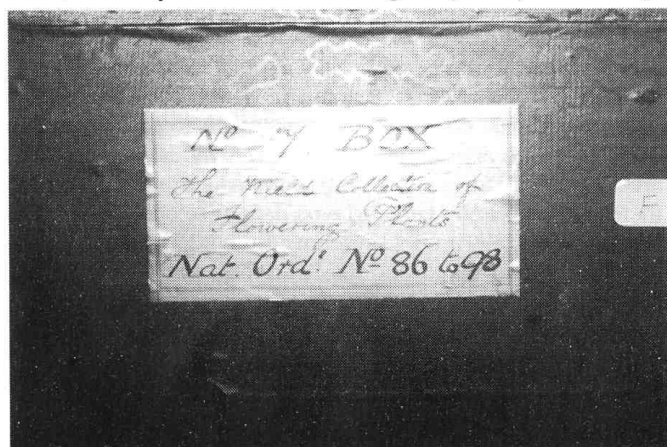 Nº 7 BOX
The Nield Collection of
Flowering Plants
Nat. Ordˢ Nº 86 to 98
F